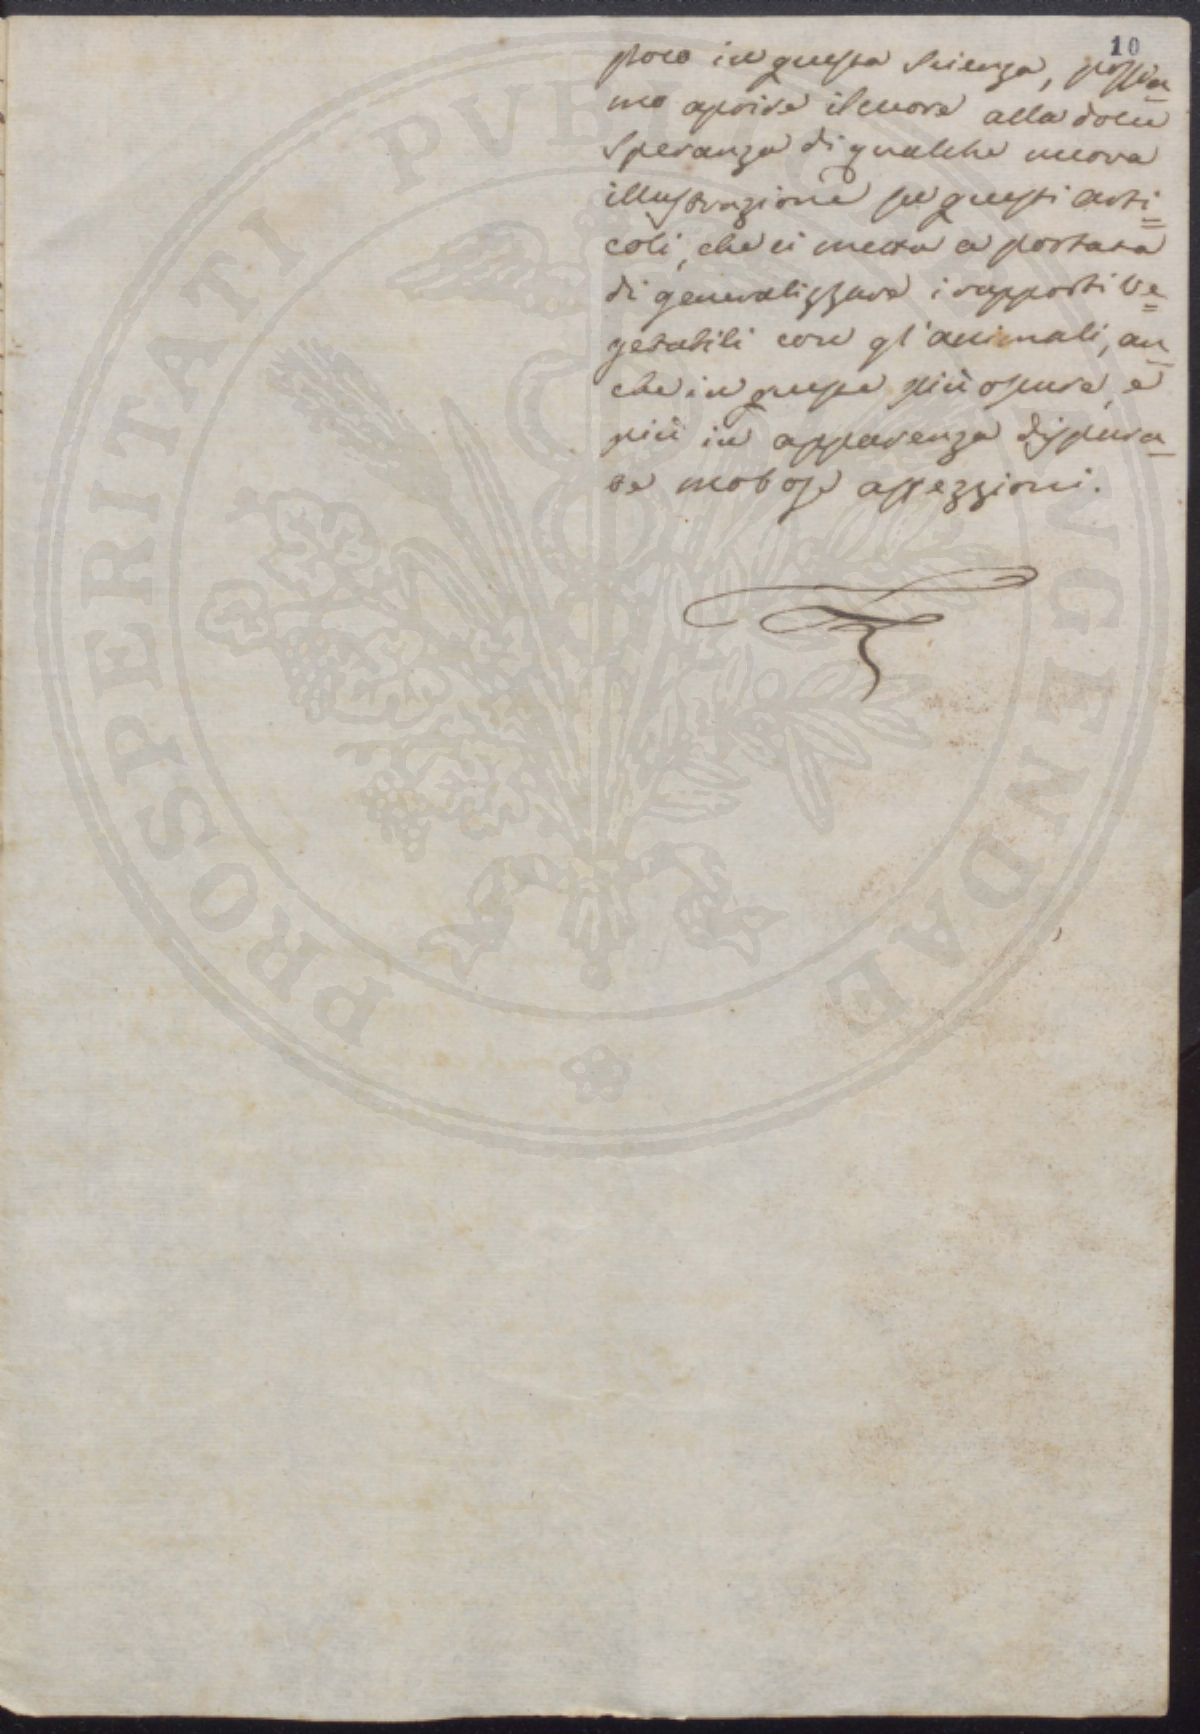 10
poco in questa Scienza, possia
mo aprire il cuore alla dolce
Speranza di qualche nuova
illustrazione su questi arti=
coli, che ci metta a portata
di generalizzare i rapporti ve=
getabili con gl'animali, an
che in queste più oscure, e
più in apparenza dispara
te morbose affezzioni.
PROSPERITATI PVBLICAE AVGENDAE